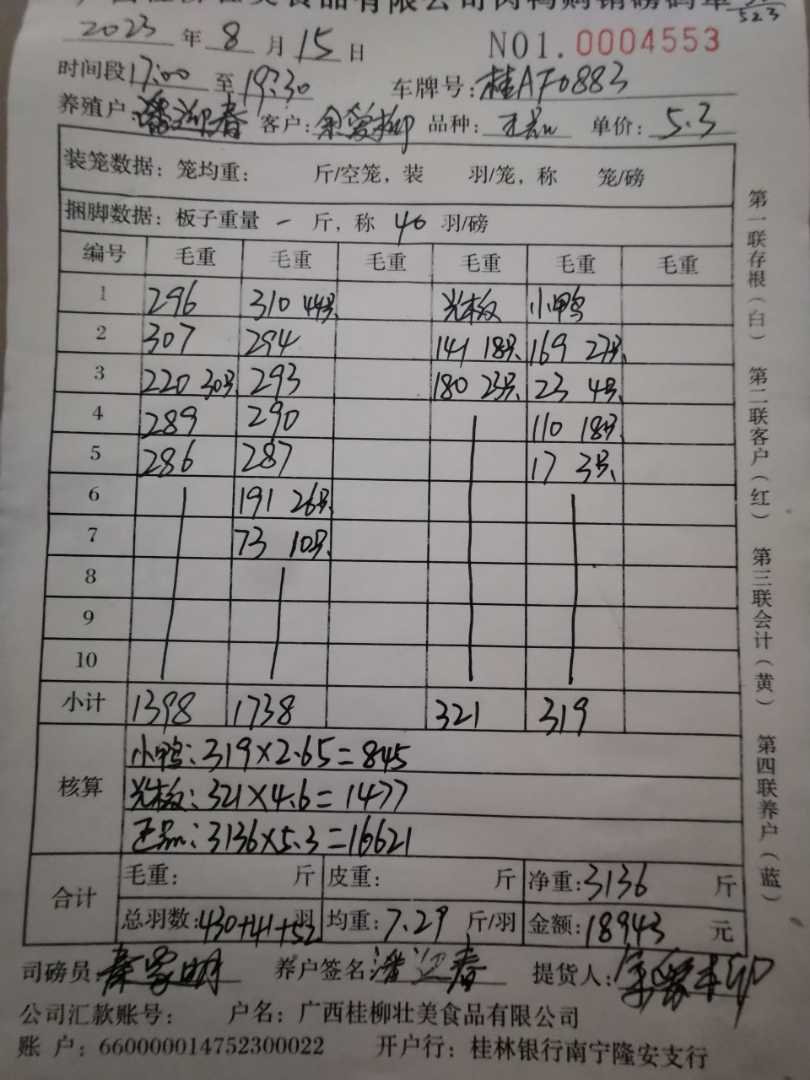 广西桂柳壮美食品有限公司肉鸭购销磅码单
523
2023 年 8 月 15 日 NO1.0004553
时间段17:00 至 19:30 车牌号:桂AF0883
养殖户:潘迎春 客户:余爱柳 品种:正品 单价:5.3
装笼数据:笼均重: 斤/空笼,装 羽/笼,称 笼/磅
捆脚数据:板子重量 一 斤,称 40 羽/磅
编号 毛重 毛重 毛重 毛重 毛重 毛重
1 296 310 44号 光板 小鸭
2 307 294 141 18号 169 27号
3 220 30号 293 180 23号 23 4号
4 289 290 110 18号
5 286 287 17 3号
6 191 26号
7 73 10号
8
9
10
小计 1398 1738 321 319
核算
小鸭:319×2.65=845
光板:321×4.6=1477
正品:3136×5.3=16621
合计
毛重: 斤 皮重: 斤 净重:3136 斤
总羽数:430+41+52 羽 均重:7.29 斤/羽 金额:18943 元
司磅员: 养户签名:潘迎春 提货人:余爱柳
公司汇款账号: 户名:广西桂柳壮美食品有限公司
账 户:660000014752300022 开户行:桂林银行南宁隆安支行
第一联存根(白) 第二联客户(红) 第三联会计(黄) 第四联养户(蓝)